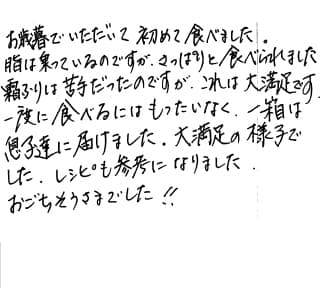 お歳暮でいただいて初めて食べました。
脂は乗っているのですが、さっぱりと食べられました
霜ふりは苦手だったのですが、これは大満足です。
一度に食べるにはもったいなく、一箱は
息子達に届けました。大満足の様子で
した。レシピも参考になりました。
おごちそうさまでした!!